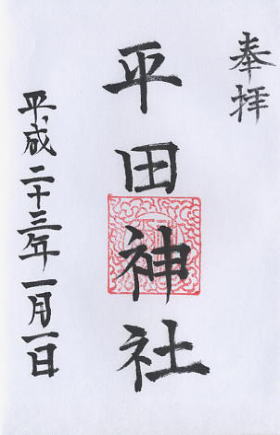 奉拝
平田神社
平成二十三年一月一日